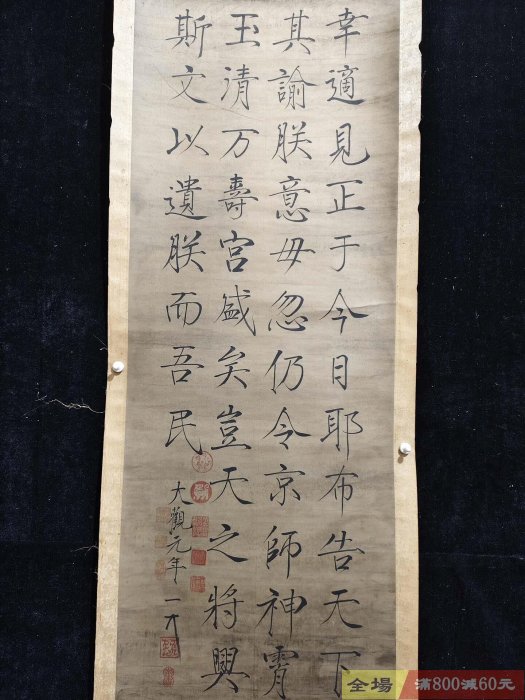 幸適見正于今日耶布告天下
其諭朕意毋忽仍令京師神霄
玉清万壽宮盛矣豈天之將興
斯文以遺朕而吾民
大觀元年一
全場
滿800減60元